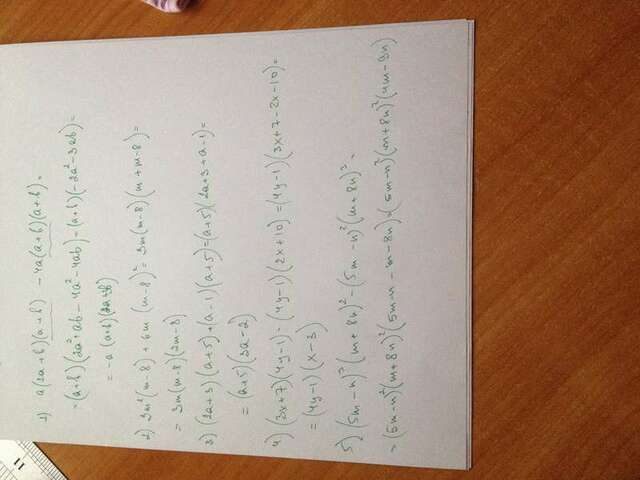 11
1) a(2a+b)(a+b) - 4a(a+b)(a+b) =
= (a+b)(2a²+ab-4a²-4ab) = (a+b)(-2a²-3ab) =
= -a(a+b)(2a+3b)
2) 3m²(m-8) + 6m(m-8)² = 3m(m-8)(m+m-8) =
= 3m(m-8)(2m-8)
3) (2a+3)(a+5)+(a-1)(a+5)=(a+5)(2a+3+a-1)=
= (a+5)(3a-2)
4) (3x+7)(4y-1) - (4y-1)(2x+10) = (4y-1)(3x+7-2x-10) =
= (4y-1)(x-3)
5) (5m-n)³(m+8n)² - (5m-n)²(m+8n)³ =
= (5m-n)²(m+8n)²(5m-n-m-8n) = (5m-n)²(m+8n)²(4m-9n)